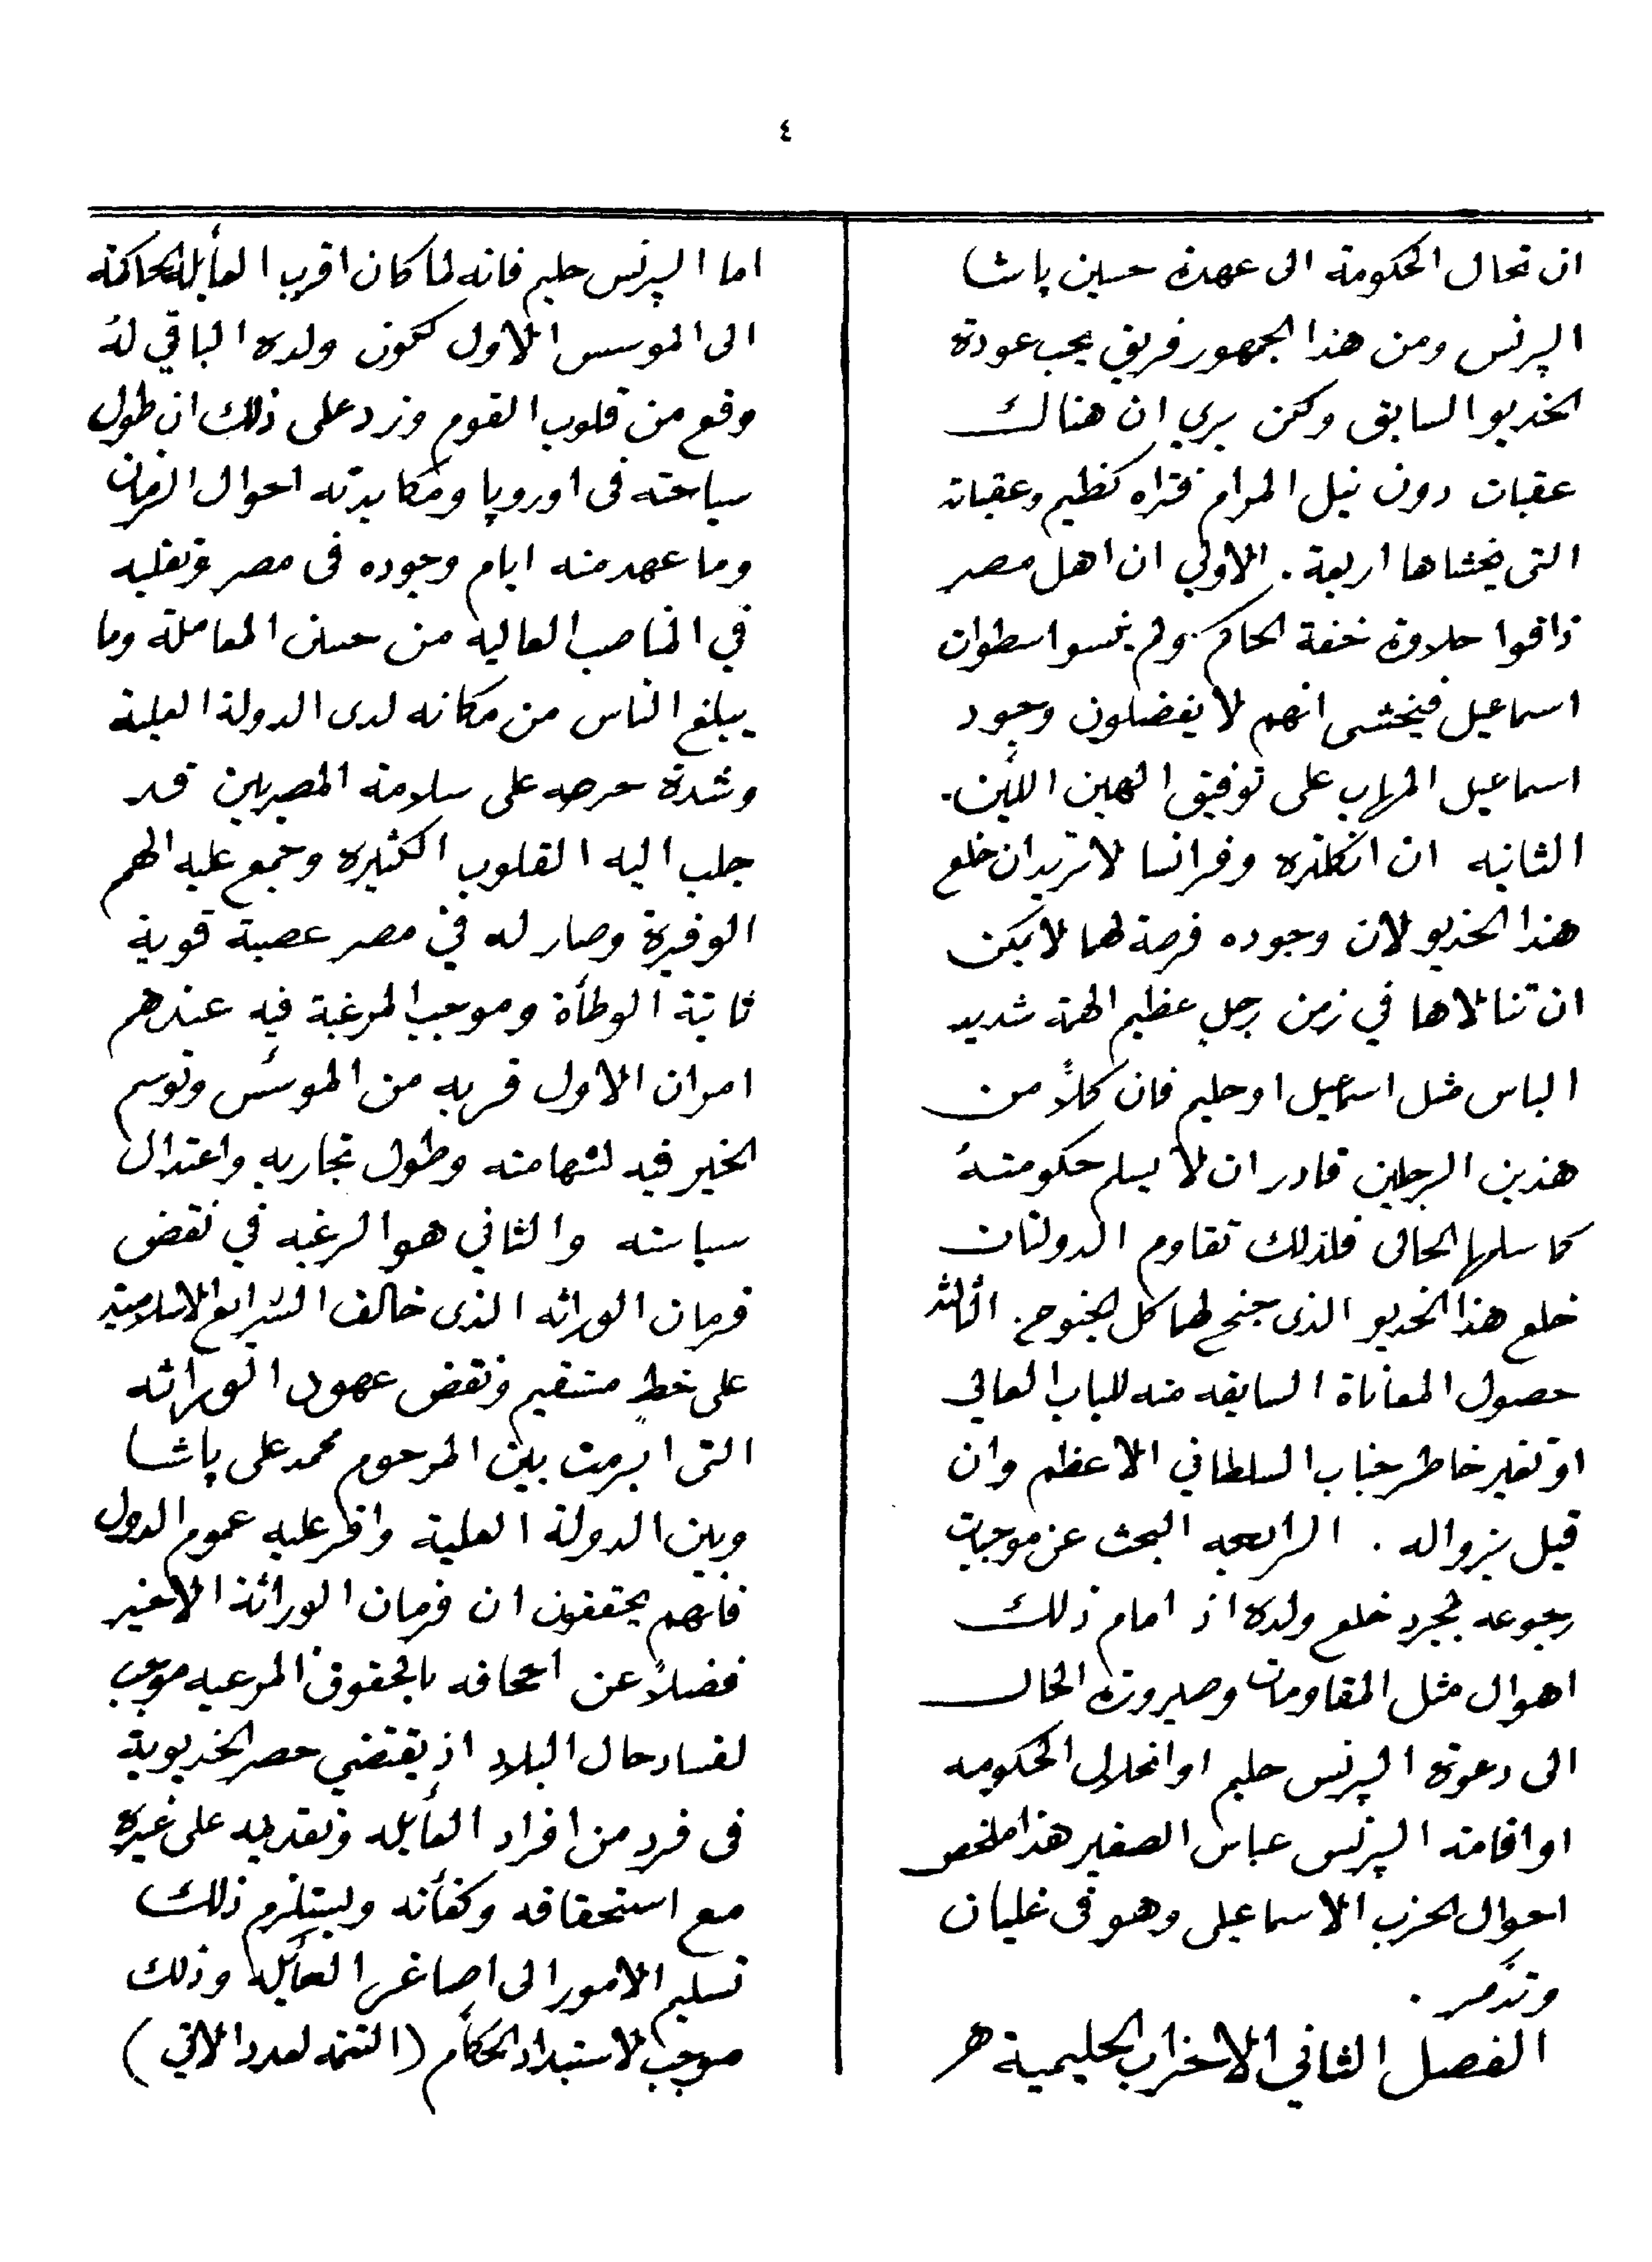 ٤
ان تحال الحكومة الى عهدة حسين پاشا
الپرنس ومن هذا الجمهور فريق يحب عودة
الخديو السابق ولكن يري ان هناك
عقبات دون نيل المرام فتراه كظيم وعقباته
التى يخشاها اربعة . الاولي ان اهل مصر
ذاقوا حلاوة خفة الحاكم ولم ينسوا سطوات
اسماعيل فيخشى انهم لا يفضلون وجود
اسماعيل المهاب على توفيق الهين اللين .
الثانيه ان انكلتره وفرانسا لا تريدان خلع
هذا الخديو لان وجوده فرصة لهما لا يمكن
ان تنالاها في زمن رجل عظيم الهمة شديد
الباس مثل اسماعيل او حليم فان كلاً من
هذين الرجلين قادر ان لا يسلم حكومتهُ
كما سلمها الحالى فلذلك تقاوم الدولتان
خلع هذا الخديو الذى جنح لهما كل الجنوح . الثالثه
حصول المعاناة السابقه منه للباب العالي
او تغير خاطر جناب السلطاني الاعظم وان
قيل بزواله . الرابعه البحث عن موجبات
رجوعه لمجرد خلع ولده اذ امام ذلك
اهوال مثل المقاومات وصيرورة الحال
الى دعوة الپرنس حليم او انحلال الحكومه
او اقامته الپرنس عباس الصغير هذا ملخص
احوال الحزب الاسماعيلى وهو فى غليان
وتذمر .
الفصل الثاني الاحزاب الحليمية هـ
اما الپرنس حليم فانه لما كان اقرب العأيلة الحاكمة
الى الموسس الاول ككون ولده الباقي لهُ
وقع من قلوب القوم وزد على ذلك ان طول
سياحته فى اوروپا ومكابدته احوال الزمان
وما عهد منه ايام وجوده فى مصر وتقلبه
في المناصب العاليه من حسن المعاملة وما
يبلغ الناس من مكانه لدى الدولة العلية
وشدة حرصه على سلامة المصريين قد
جلب اليه القلوب الكثيره وجمع عليه الهمم
الوفيرة وصار له في مصر عصبة قوية
ثابتة الوطأة وموجب المرغبة فيه عندهم
امران الاول قربه من الموسّس وتوسم
الخير فيه لشهامته وطول تجاربه واعتدال
سياسته والثاني هو الرغبه في نقض
فرمان الوراثه الذى خالف الشرايع الاسلامية
على خطٍ مستقيم ونقض عهود الوراثه
التى ابرمت بين المرحوم محمد على پاشا
وبين الدولة العلية واقر عليه عموم الدول
فانهم يحققون ان فرمان الوراثة الاخير
فضلاً عن اجحافه بالحقوق المرعيه موجب
لفساد حال البلاد اذ يقتضي حصر الخديوية
فى فرد من افراد العأيله وتقديمه على غيره
مع استحقاقه وكفأته ويستلزم ذلك
تسليم الامور الى اصاغر العأيله وذلك
موجب لاستبداد الحكام (التتمه لعدد الاتي)